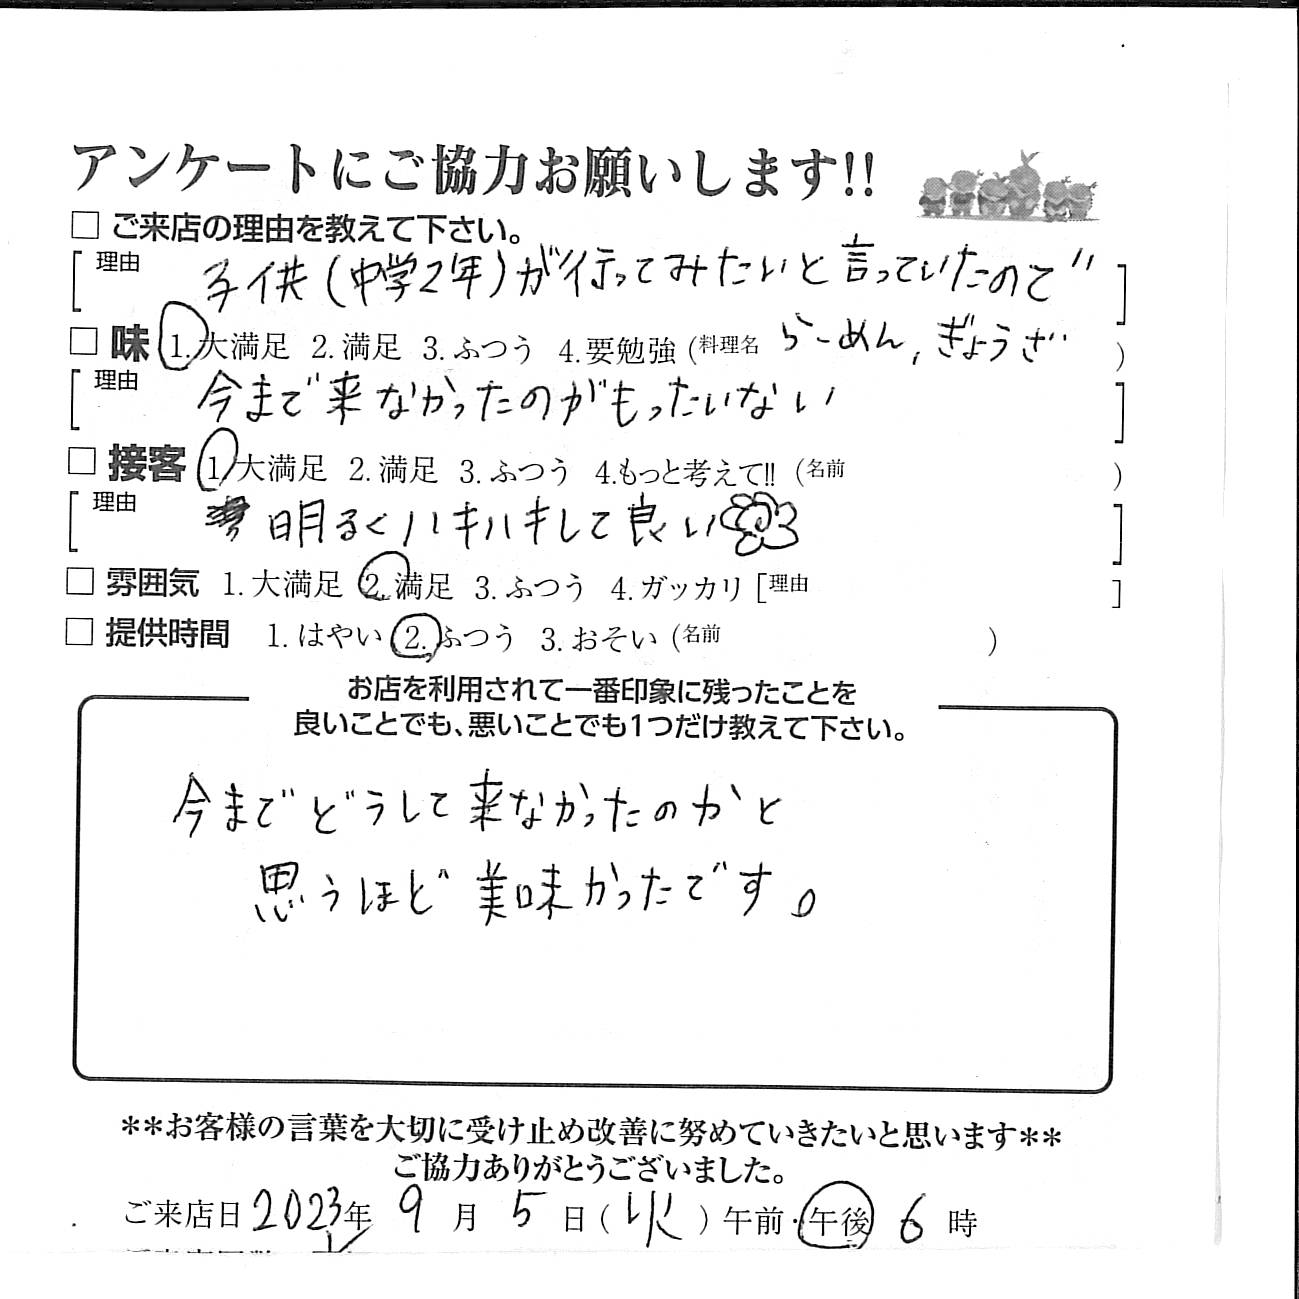 アンケートにご協力お願いします!!
□ ご来店の理由を教えて下さい。
[理由 子供(中学2年)が行ってみたいと言っていたので]
□ 味 1.大満足 2.満足 3.ふつう 4.要勉強(料理名 らーめん,ぎょうざ)
[理由 今まで来なかったのがもったいない]
□ 接客 1.大満足 2.満足 3.ふつう 4.もっと考えて!! (名前 )
[理由 明るくハキハキして良い]
□ 雰囲気 1.大満足 2.満足 3.ふつう 4.ガッカリ[理由 ]
□ 提供時間 1.はやい 2.ふつう 3.おそい(名前 )
お店を利用されて一番印象に残ったことを
良いことでも、悪いことでも1つだけ教えて下さい。
今までどうして来なかったのかと
思うほど美味かったです。
**お客様の言葉を大切に受け止め改善に努めていきたいと思います**
ご協力ありがとうございました。
ご来店日 2023年 9月 5日(火)午前・午後 6時